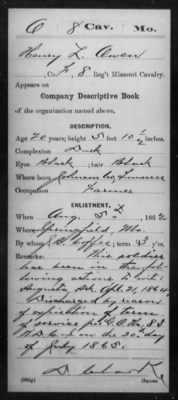 O 8 Cav. Mo.
Henry L. Owen
, Co. F, 8 Reg't Missouri Cavalry.
Appears on
Company Descriptive Book
of the organization named above.
DESCRIPTION.
Age 20 years; height 5 feet 10 1/2 inches.
Complexion Dark
Eyes Black; hair Black
Where born Johnson Co. Tennessee
Occupation Farmer
ENLISTMENT.
When Aug. 5, 1862
Where Springfield, Mo.
By whom Coffee; term 3 y'rs.
Remarks: This soldier
has been in the fol-
lowing actions to wit:
Augusta Ark. Apl. 21, 1864
Discharged by reason
of expiration of term
of service per G.O. No. 83
W.D. C.S. on the 20 th
day of July 1865.
Copyist.